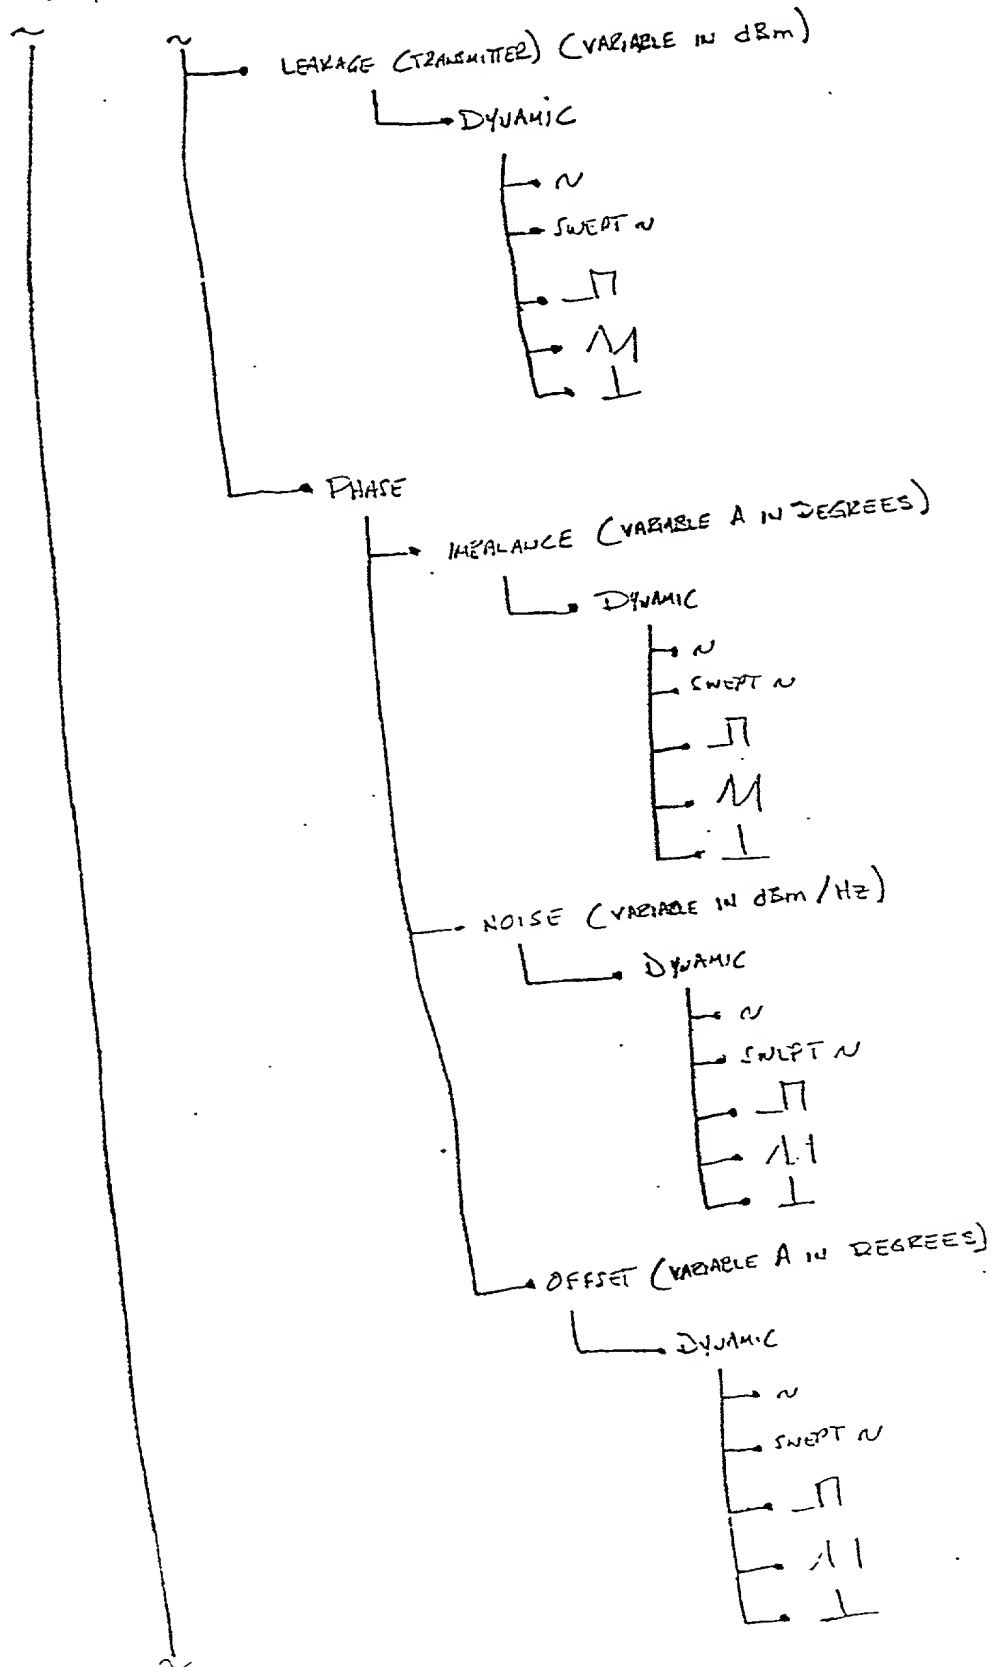 LEAKAGE (TRANSMITTER) (VARIABLE IN dBm)
DYNAMIC
~
SWEPT ~
PHASE
IMBALANCE (VARIABLE A IN DEGREES)
DYNAMIC
~
SWEPT ~
NOISE (VARIABLE IN dBm/Hz)
DYNAMIC
~
SWEPT ~
OFFSET (VARIABLE A IN DEGREES)
DYNAMIC
~
SWEPT ~